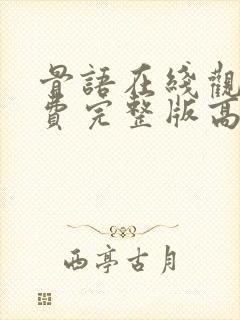 骨語在綫觀
費完整版高
西亭古月